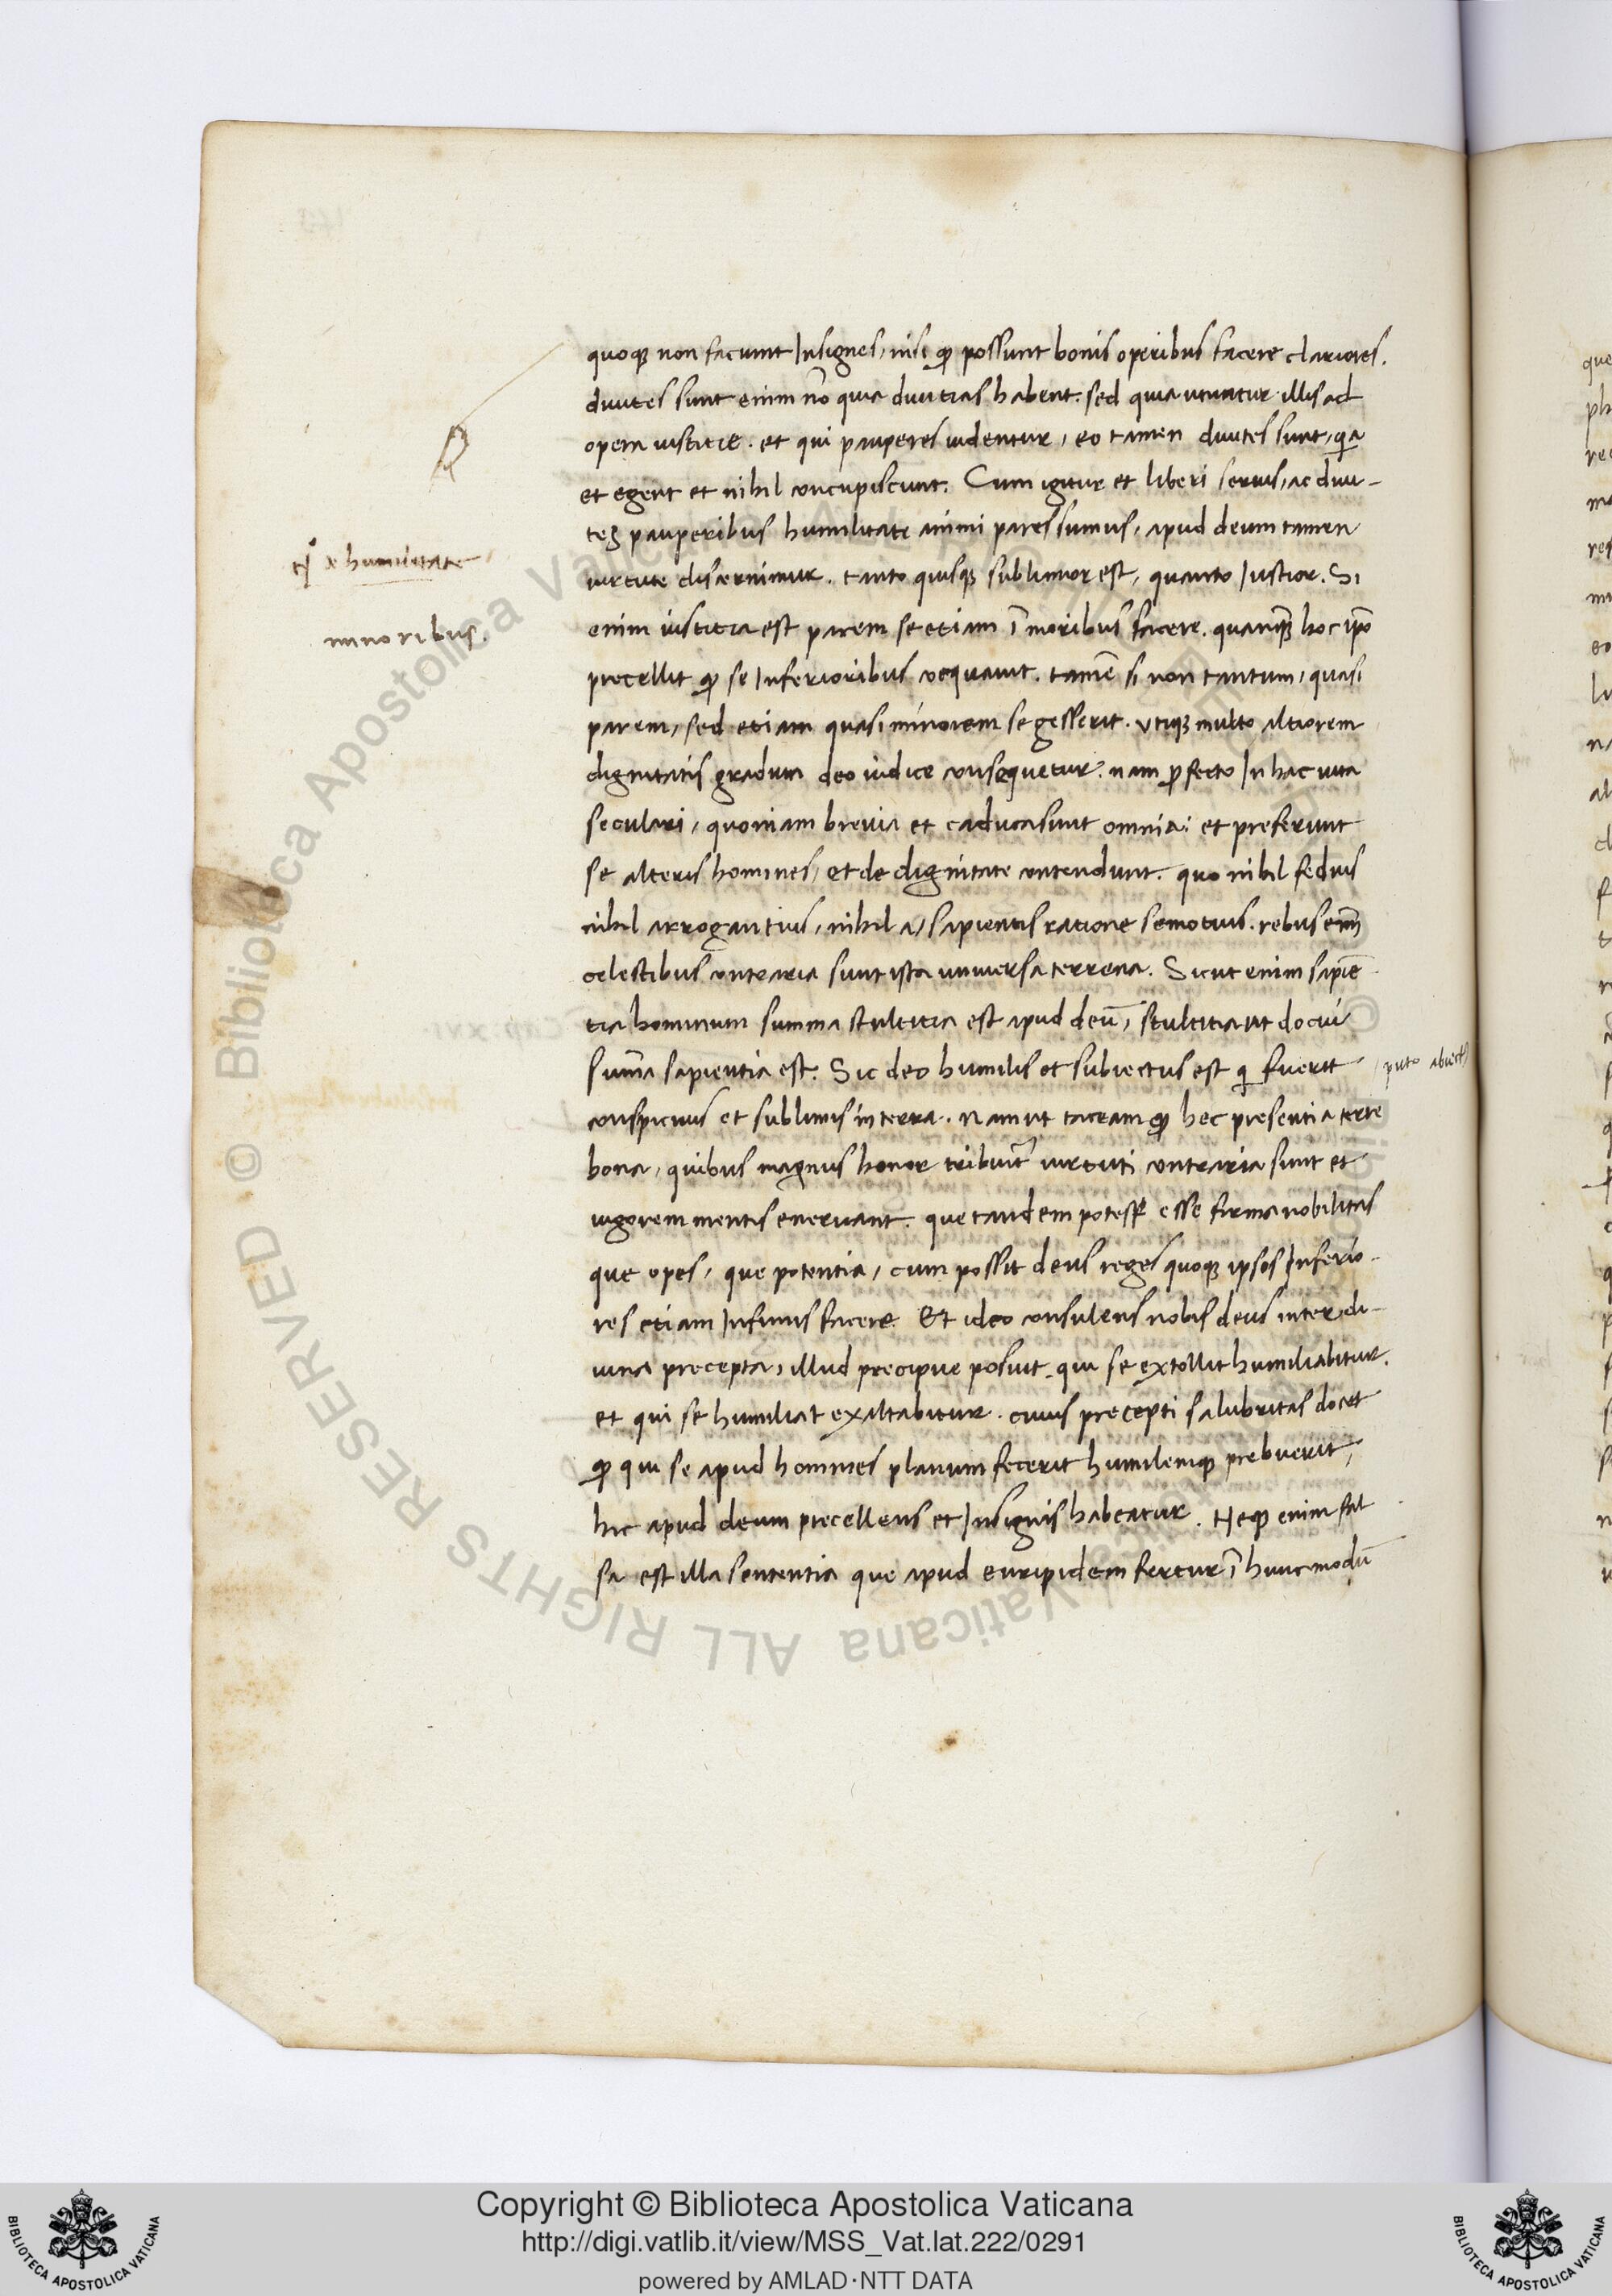 quoq; non faciunt Insignes, nisi ꝙ possunt bonis operibus facere clariores.
diuites sunt enim nō quia diuitias habent. sed quia utuntur illis ad
opera iustitie. et qui pauperes uidentur, eo tamen diuites sunt, qa
et egent et nihil concupiscunt. Cum igitur et liberi seruis, ac diui-
tes pauperibus humilitate animi pares sumus, apud deum tamen
uirtute discernimur. tanto quisq; sublimior est, quanto Iustior. Si
enim iustitia est parem se etiam ī moribus facere. quanq̄ hoc ipō
precellit ꝙ se Inferioribus coequauit. tamē si non tantum, quasi
parem, sed etiam quasi minorem se gesserit. utiq; multo altiorem
dignitatis gradum deo iudice consequetur. nam ꝓfecto In hac uita
seculari, quoniam breuia et caduca sunt omnia: et preferunt
se alteris homines, et de dignitate contendunt. quo nihil fedius
nihil arrogantius, nihil a sapientis ratione semotius. rebus enim
celestibus contraria sunt ista uniuersa terrena. Sicut enim sapiē
tia hominum summa stultitia est apud deū, stultitia ut docui
sum̄a sapientia est. Sic deo humilis et subiectus est q fuerit
conspicuus et sublimis in terra. Nam ut taceam ꝙ hec presentia terre
bona, quibus magnus honor tribuit̄ uirtuti contraria sunt et
uigorem mentis eneruant. que tandem potest esse firma nobilitas
que opes, que potentia, cum possit deus reges quoq; ipsos Inferio-
res etiam Infimis facere Et ideo consulens nobis deus inter di-
uina precepta, illud precipue posuit. qui se extollit humiliabitur.
et qui se humiliat exaltabitur. cuius precepti salubritas docet
ꝙ qui se apud homines planum fecerit humilemq; prebuerit,
hic apud deum precellens et Insignis habeatur. Neq; enim fal
sa est illa sententia que apud euripidem fertur ī hunc modū
humilitate
minoribus.
puto abiect9
Copyright © Biblioteca Apostolica Vaticana
http://digi.vatlib.it/view/MSS_Vat.lat.222/0291
powered by AMLAD·NTT DATA
BIBLIOTECA APOSTOLICA VATICANA
BIBLIOTECA APOSTOLICA VATICANA
© Biblioteca Apostolica Vaticana ALL RIGHTS RESERVED